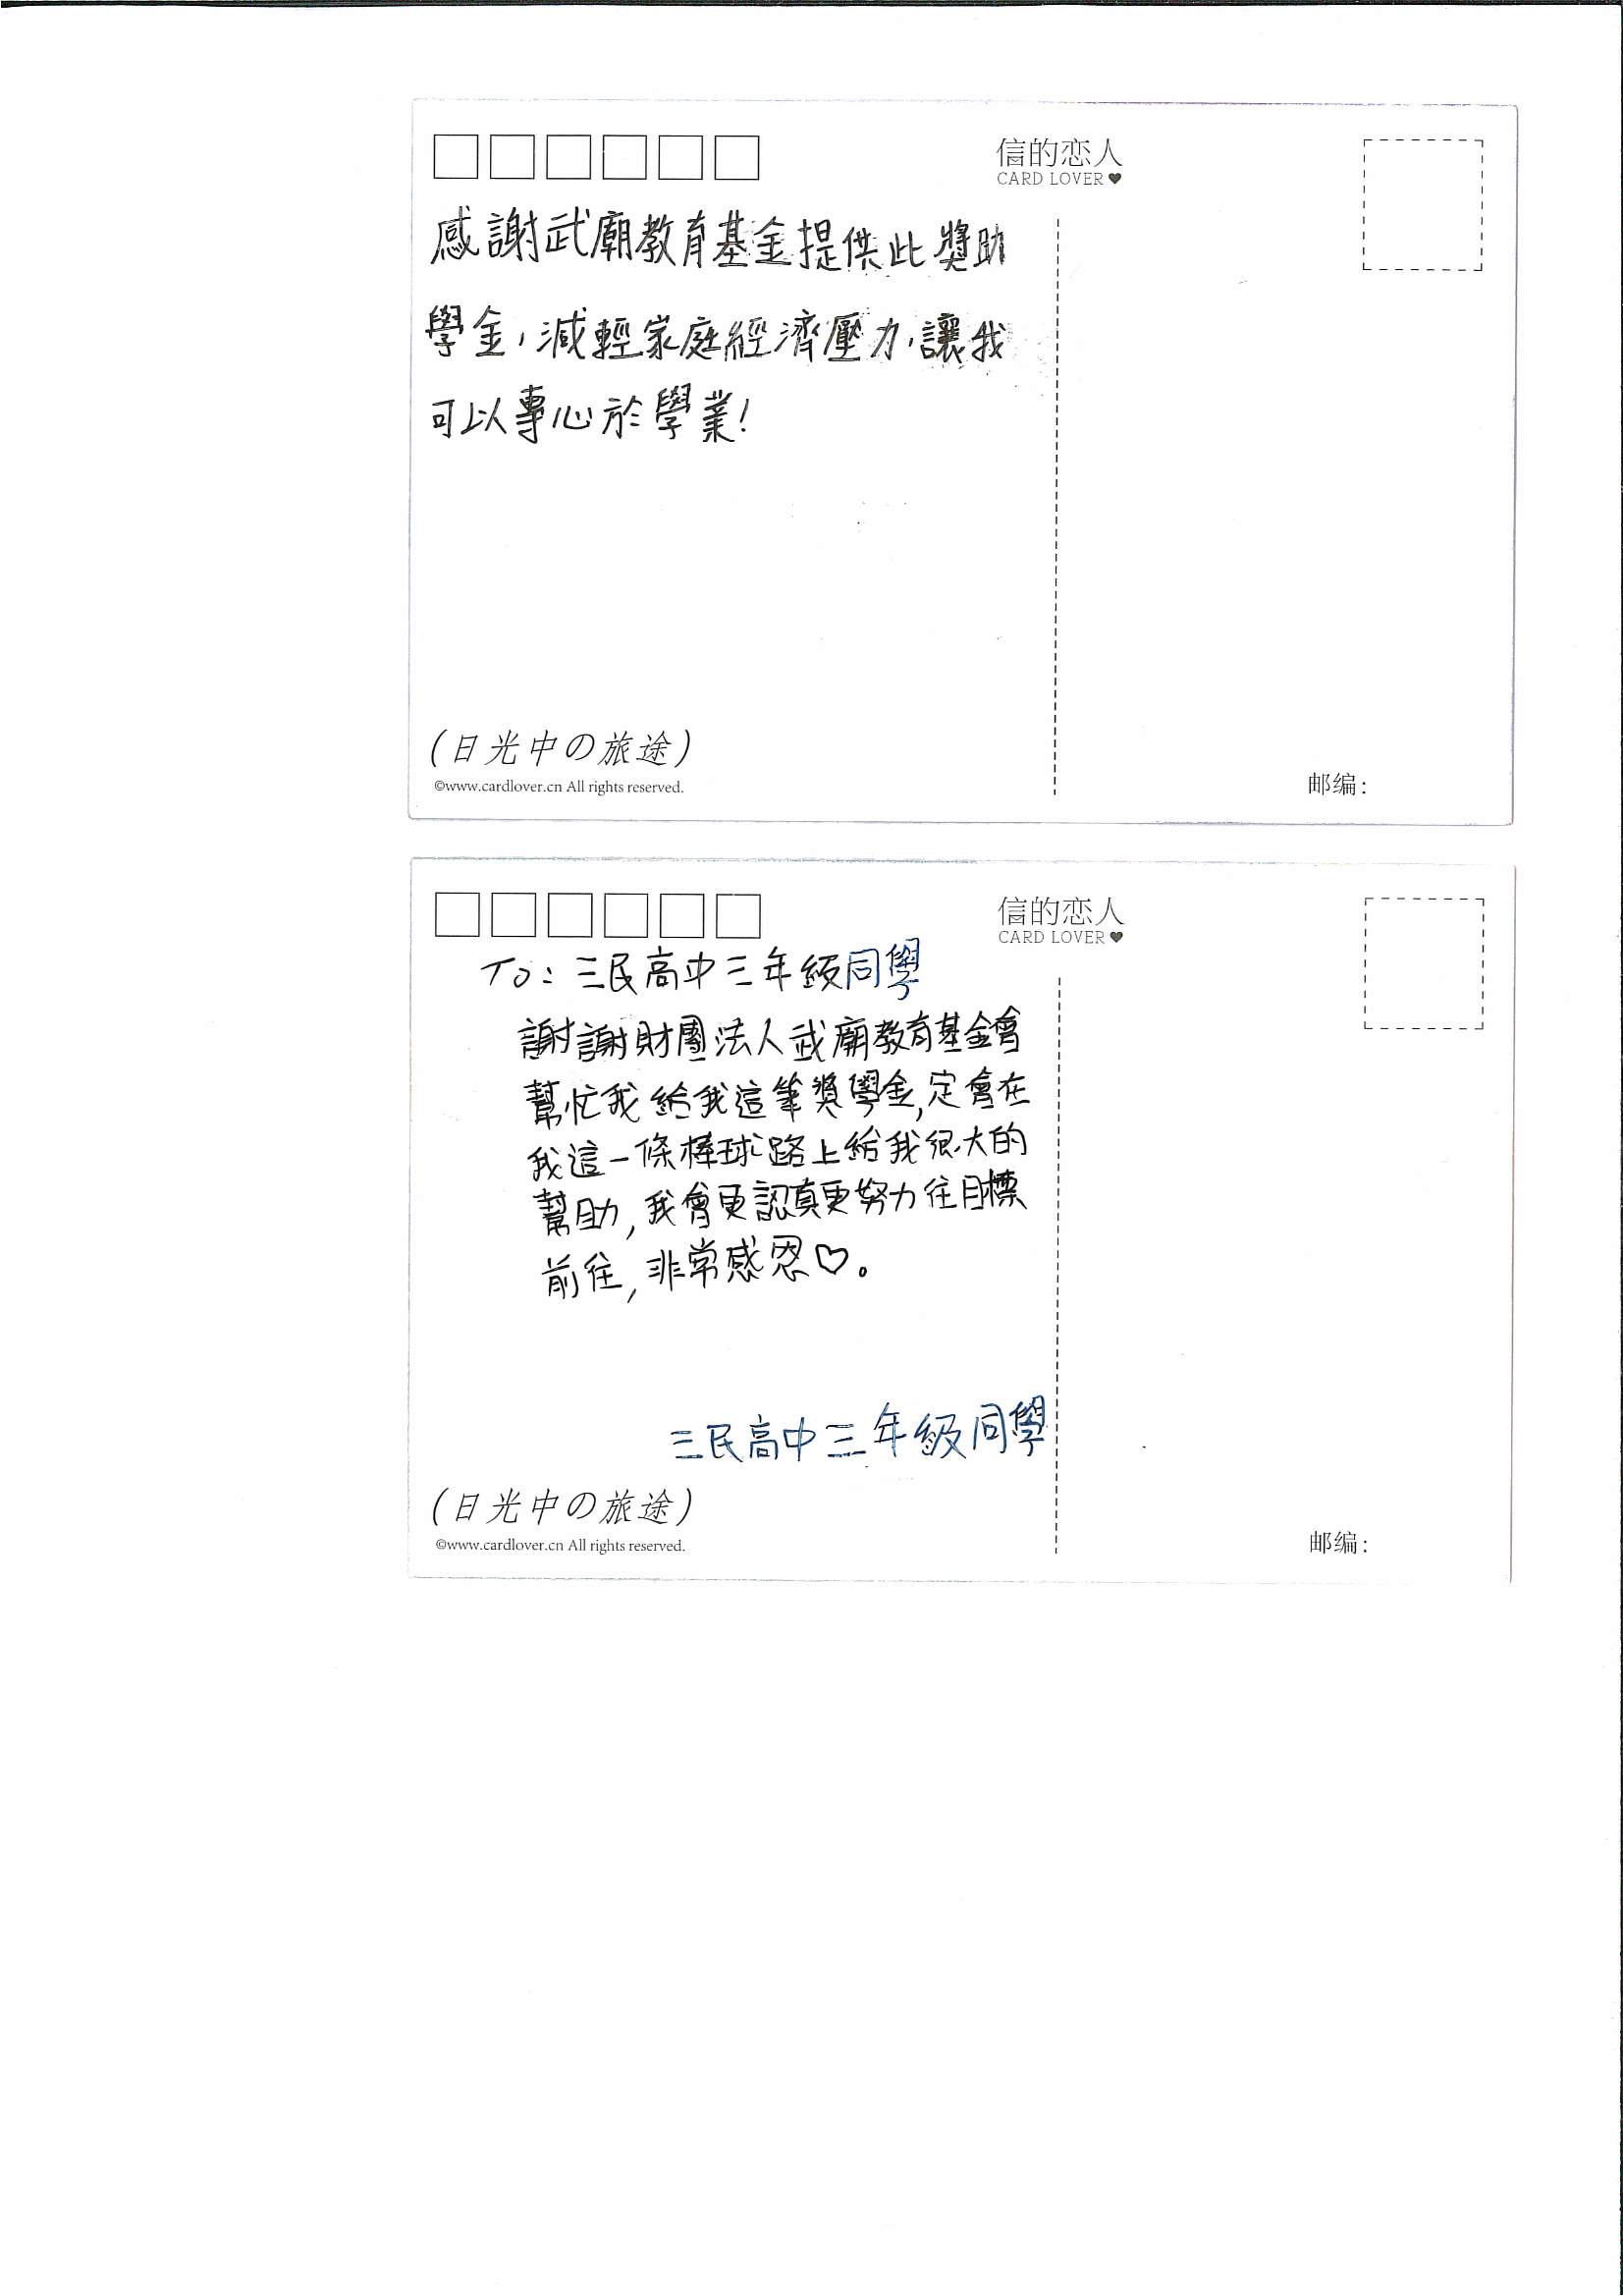 信的恋人
CARD LOVER♥
感謝武廟教育基金提供此獎助
學金,減輕家庭經濟壓力,讓我
可以專心於學業!
(日光中の旅途)
©www.cardlover.cn All rights reserved.
邮编:
信的恋人
CARD LOVER♥
To: 三民高中三年級同學
謝謝財團法人武廟教育基金會
幫忙我給我這筆獎學金,定會在
我這一條棒球路上給我很大的
幫助,我會更認真更努力往目標
前往,非常感恩♡。
三民高中三年級同學
(日光中の旅途)
©www.cardlover.cn All rights reserved.
邮编: